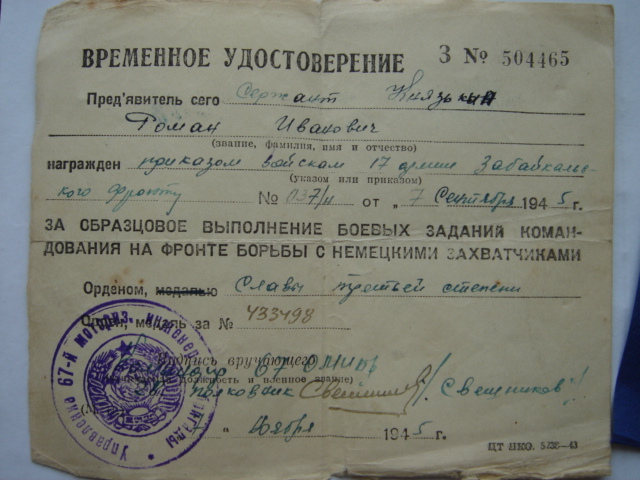 ВРЕМЕННОЕ УДОСТОВЕРЕНИЕ З № 504465
Пред'явитель сего Сержант Князькин
Роман Иванович
(звание, фамилия, имя и отчество)
награжден приказом войскам 17 армии Забайкальс-
кого фронту (указом или приказом)
№ 037/н от „ 7 Сентября 1945 г.
ЗА ОБРАЗЦОВОЕ ВЫПОЛНЕНИЕ БОЕВЫХ ЗАДАНИЙ КОМАН-
ДОВАНИЯ НА ФРОНТЕ БОРЬБЫ С НЕМЕЦКИМИ ЗАХВАТЧИКАМИ
Орденом, медалью Славы третьей степени
Орден, медаль за № 433498
Подпись вручающего
67
должность и военное звание)
Полковник Свешников
„ Ноября 1945 г.
ЦТ НКО. 5238—43
Управление 67-й моториз. инженер бригады